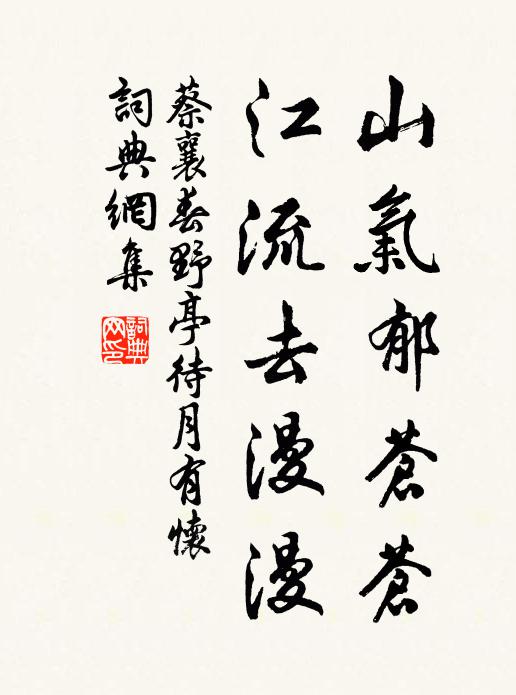 山氣郁蒼蒼
江流去漫漫
蔡襄春野亭待月有懷
詞典網集
詞典網印